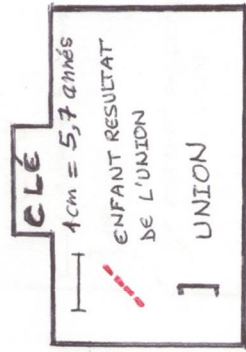 CLÉ
1cm = 5,7 annés
ENFANT RESULTAT
DE L'UNION
UNION